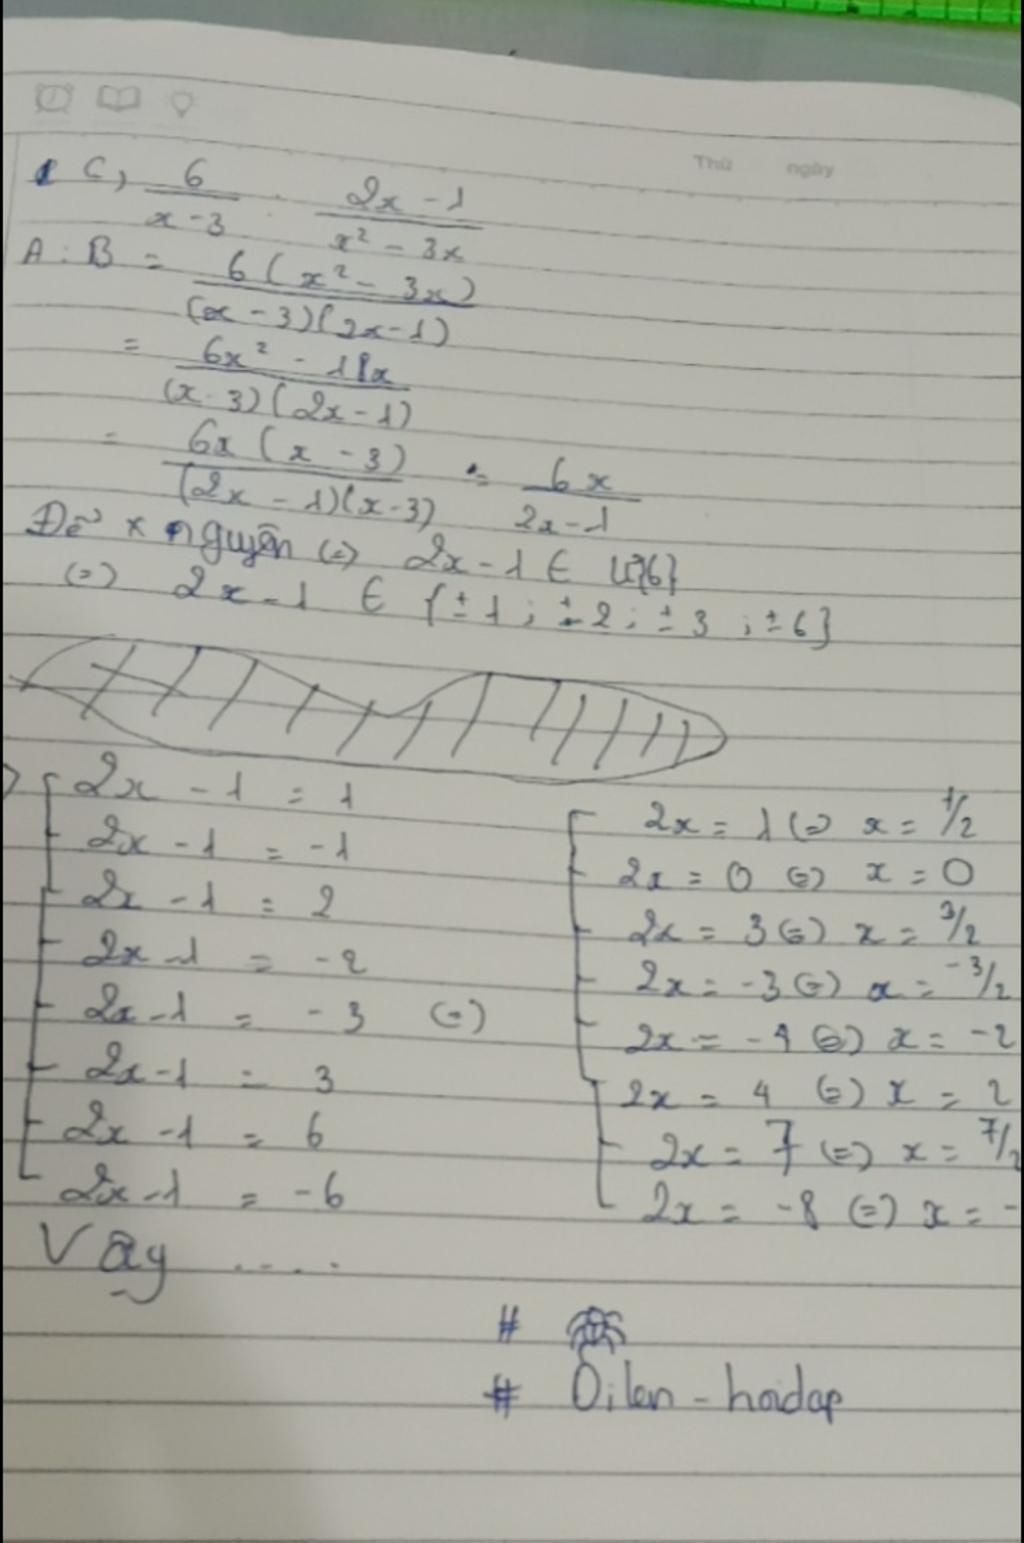 Thứ ngày
1 C, 6/(x-3) : (2x-1)/(x²-3x)
A : B = 6(x²-3x)/(x-3)(2x-1)
= (6x²-18x)/(x-3)(2x-1)
= 6x(x-3)/(2x-1)(x-3) = 6x/(2x-1)
Để x nguyên (=) 2x-1 ∈ Ư{6}
(=) 2x-1 ∈ {±1; ±2; ±3; ±6}
2x - 1 = 1
2x - 1 = -1
2x - 1 = 2
2x - 1 = -2
2x - 1 = -3 (=)
2x - 1 = 3
2x - 1 = 6
2x - 1 = -6
2x = 1 (=) x = 1/2
2x = 0 (=) x = 0
2x = 3 (=) x = 3/2
2x = -3 (=) x = -3/2
2x = -4 (=) x = -2
2x = 4 (=) x = 2
2x = 7 (=) x = 7/2
2x = -8 (=) x = -
Vậy .....
#
# Oilen-hoidap